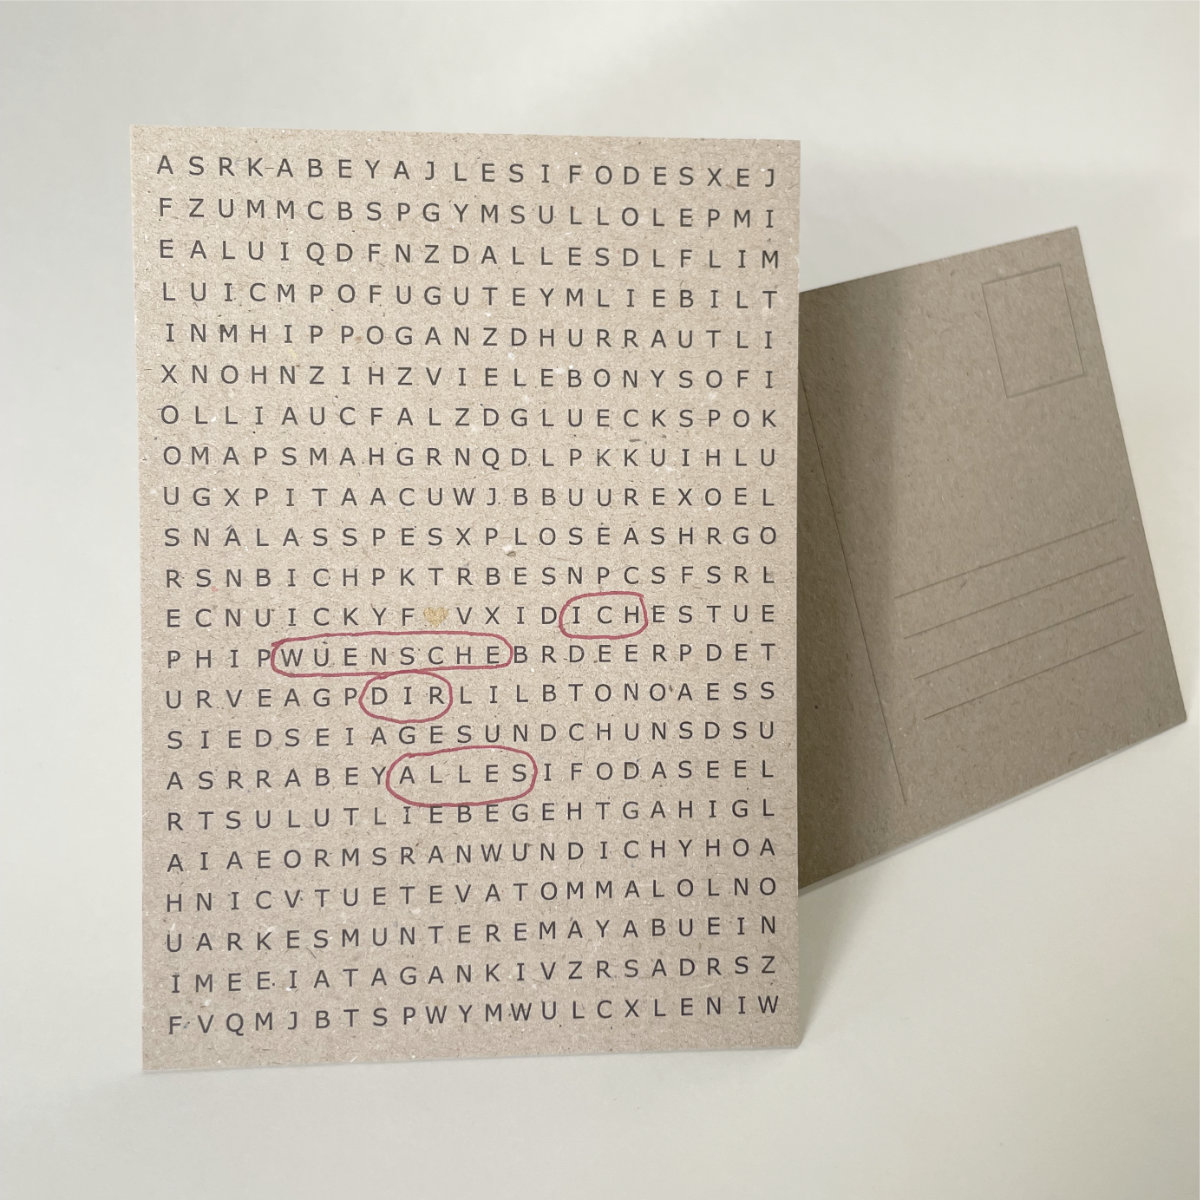 A S R K A B E Y A J L E S I F O D E S X E J
F Z U M M C B S P G Y M S U L L O L E P M I
E A L U I Q D F N Z D A L L E S D L F L I M
L U I C M P O F U G U T E Y M L I E B I L T
I N M H I P P O G A N Z D H U R R A U T L I
X N O H N Z I H Z V I E L E B O N Y S O F I
O L L I A U C F A L Z D G L U E C K S P O K
O M A P S M A H G R N Q D L P K K U I H L U
U G X P I T A A C U W J B B U U R E X O E L
S N A L A S S P E S X P L O S E A S H R G O
R S N B I C H P K T R B E S N P C S F S R L
E C N U I C K Y F V X I D I C H E S T U E
P H I P W U E N S C H E B R D E E R P D E T
U R V E A G P D I R L I L B T O N O A E S S
S I E D S E I A G E S U N D C H U N S D S U
A S R R A B E Y A L L E S I F O D A S E E L
R T S U L U T L I E B E G E H T G A H I G L
A I A E O R M S R A N W U N D I C H Y H O A
H N I C V T U E T E V A T O M M A L O L N O
U A R K E S M U N T E R E M A Y A B U E I N
I M E E I A T A G A N K I V Z R S A D R S Z
F V Q M J B T S P W Y M W U L C X L E N I W